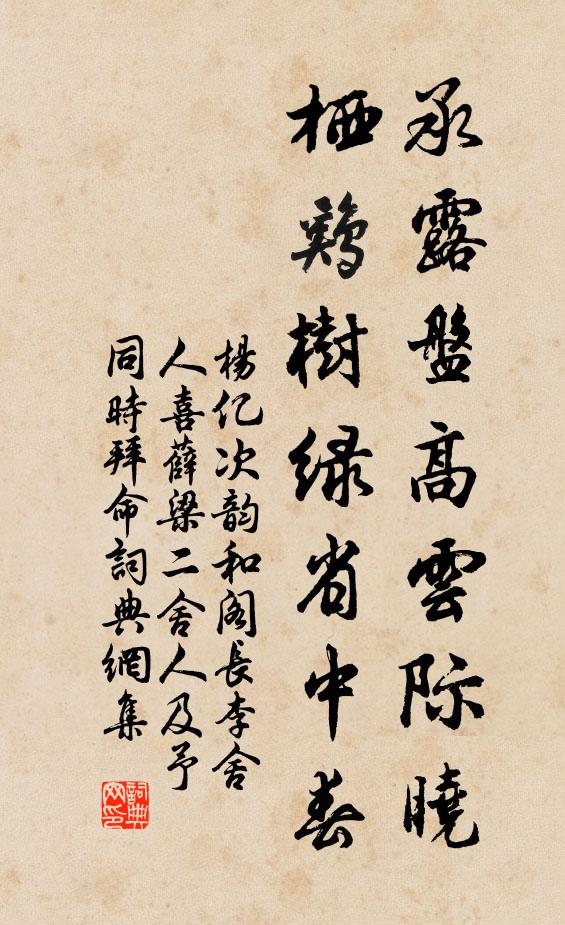 承露盤高雲际曉
栖鷄樹緑省中春
楊亿次韵和阁長李舍
人喜薛梁二舍人及予
同時拜命詞典網集
詞典网印